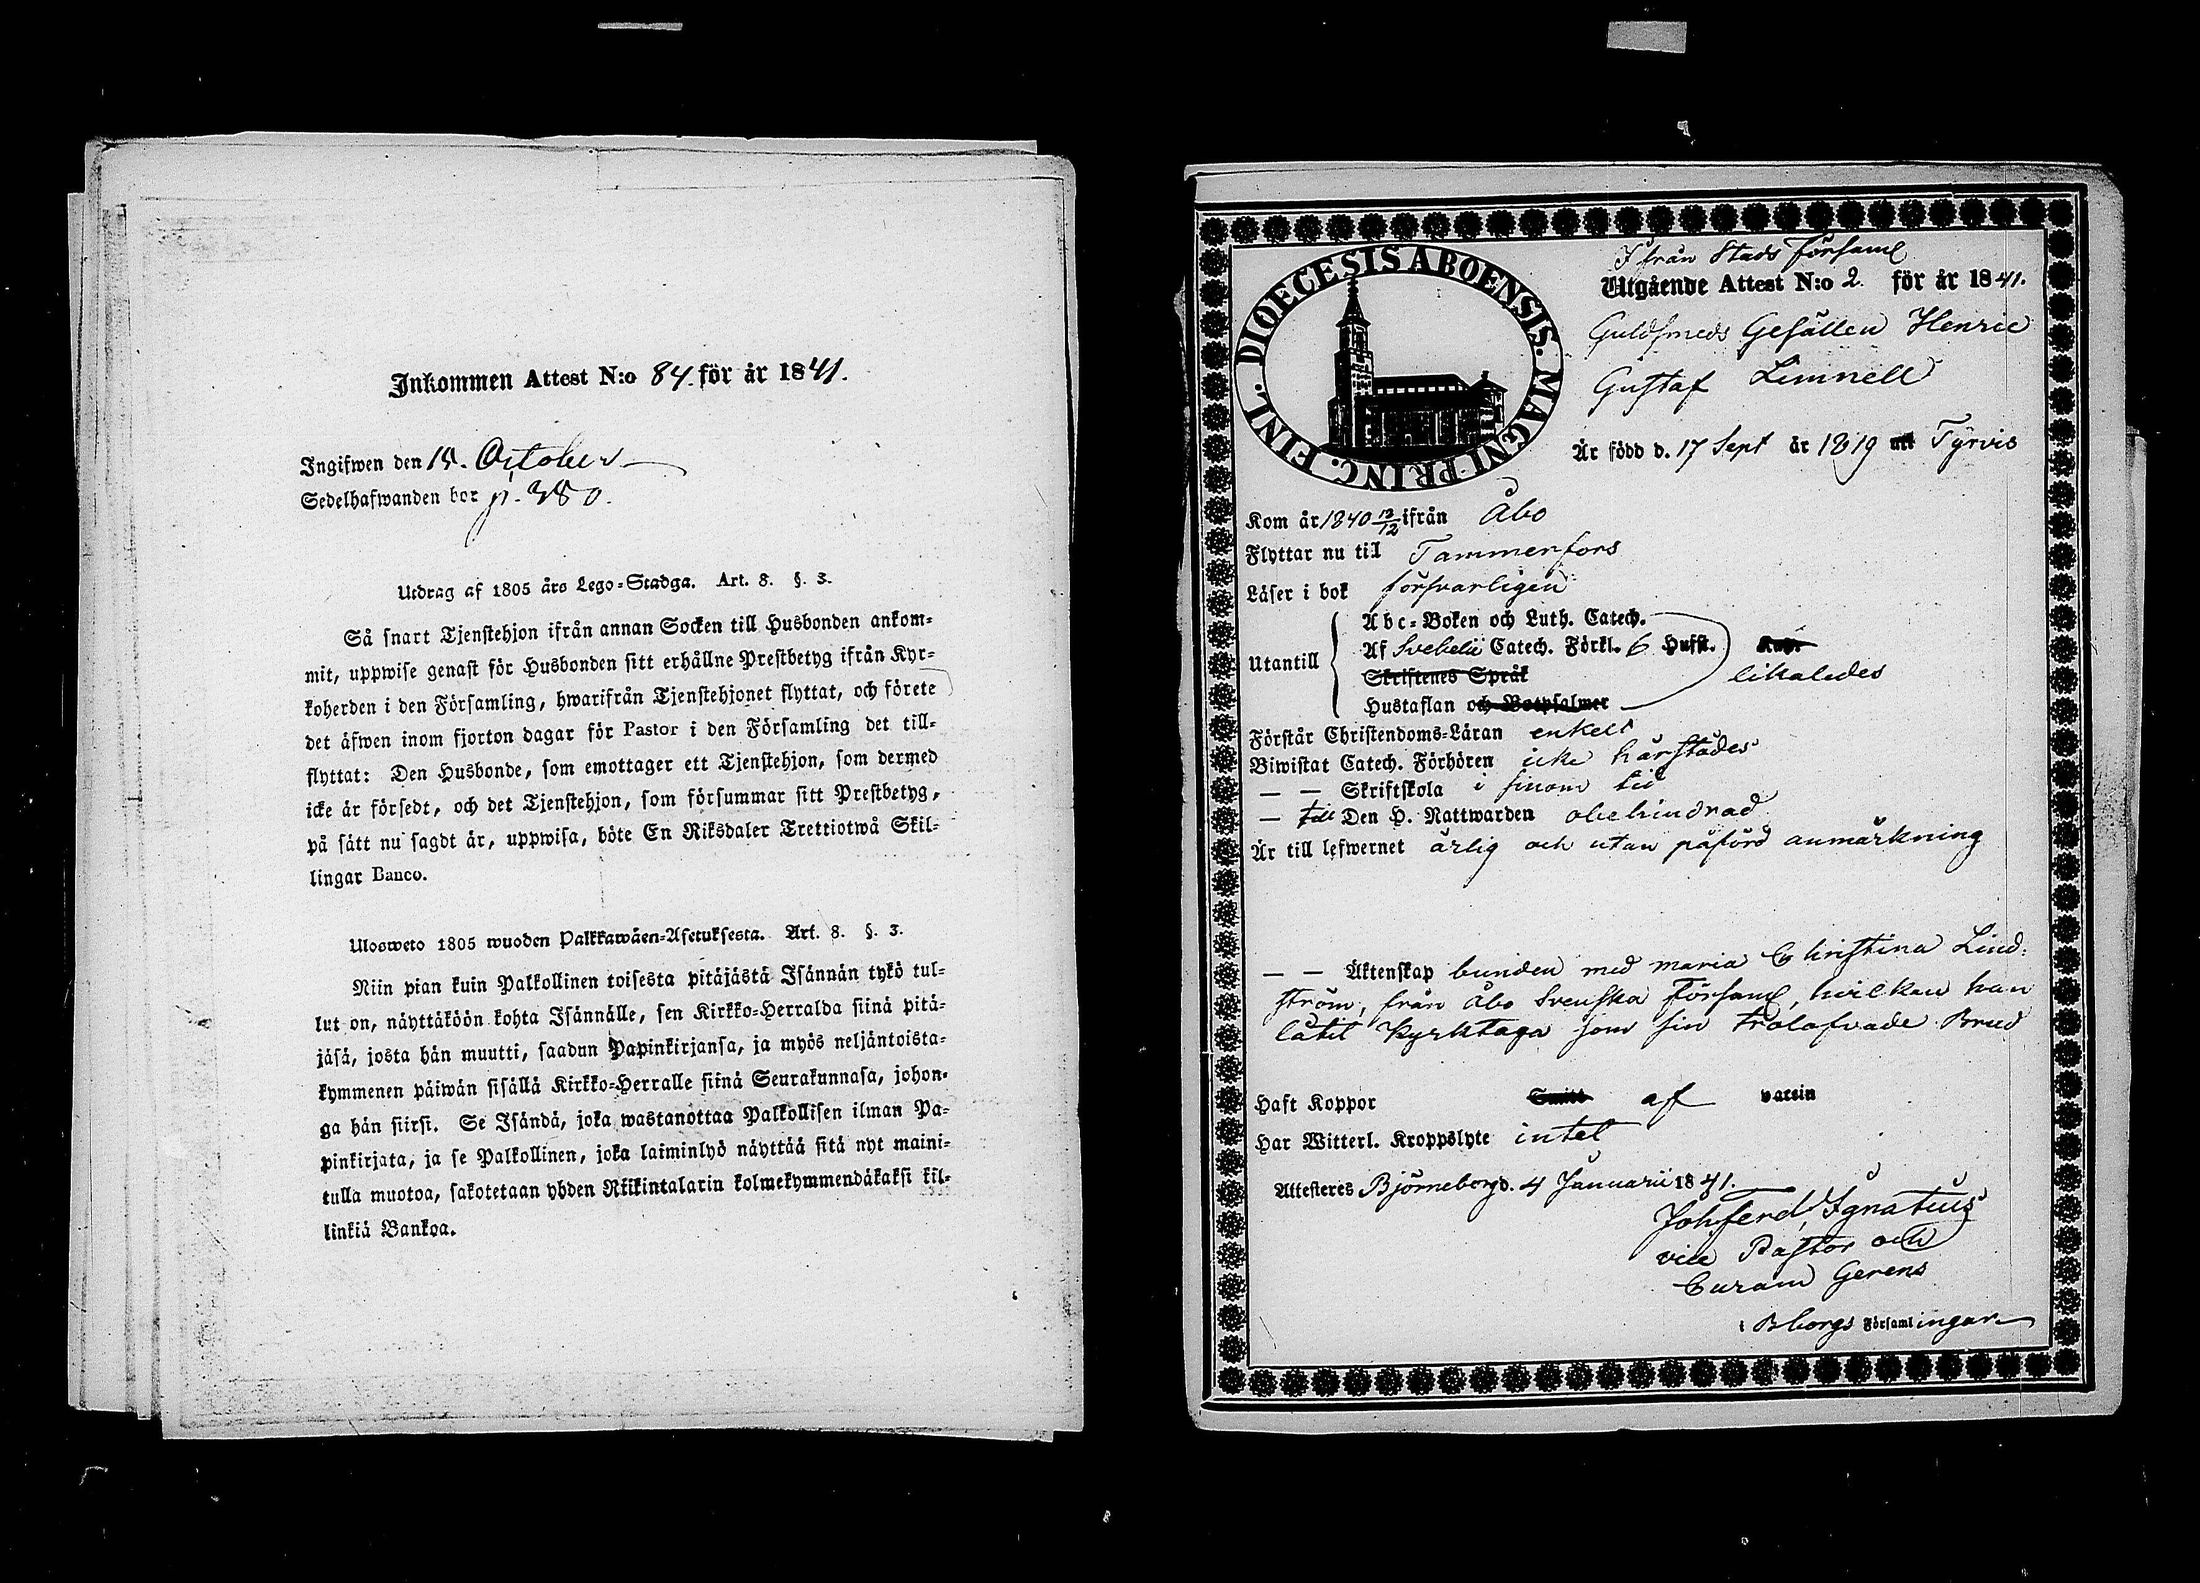 Inkommen Attest N:o 84. för år 1841.
Ingifwen den 15. October
Sedelhafwanden bor p. 380.
Utdrag af 1805 års Lego-Stadga. Art. 8. §. 3.
Så snart Tjenstehjon ifrån annan Socken till Husbonden ankom-
mit, uppwise genast för Husbonden sitt erhållne Prestbetyg ifrån Kyr-
koherden i den Församling, hwarifrån Tjenstehjonet flyttat, och förete
det äfwen inom fjorton dagar för Pastor i den Församling det till-
flyttat: Den Husbonde, som emottager ett Tjenstehjon, som dermed
icke är försedt, och det Tjenstehjon, som försummar sitt Prestbetyg,
på sätt nu sagdt är, uppwisa, böte En Riksdaler Trettiotwå Skil-
lingar Banco.
Ulosweto 1805 wuoden Palkkawäen-Asetuksesta. Art. 8. §. 3.
Niin pian kuin Palkollinen toisesta pitäjästä Isännän tykö tul-
lut on, näyttäköön kohta Isännälle, sen Kirkko-Herralda siinä pitä-
jäsä, josta hän muutti, saadun Papinkirjansa, ja myös neljäntoista-
kymmenen päiwän sisällä Kirkko-Herralle siinä Seurakunnasa, johon-
ga hän siirsi. Se Isändä, joka wastanottaa Palkollisen ilman Pa-
pinkirjata, ja se Palkollinen, joka laiminlyö näyttää sitä nyt maini-
tulla muotoa, sakotetaan yhden Riikintalarin kolmekymmendäkaksi kil-
linkiä Bankoa.
DIOECESIS ABOENSIS. MAGNI PRINC. FINL.
Ifrån Stads Församl
Utgående Attest N:o 2. för år 1841.
Guldsmeds Gesällen Henric
Gustaf Limnell
Är född d. 17 Sept år 1819 uti Tyrvis
Kom år 1840 13/12 ifrån Åbo
Flyttar nu til Tammerfors
Läser i bok försvarligen
Utantill
Abc-Boken och Luth. Catech.
Af Svebelii Catech. Förkl. 6 Hufst.
Skriftenes Språk
Hustaflan och Botpsalmer
likaledes
Förstår Christendoms-Läran enkelt
Biwistat Catech. Förhören icke härstädes
— — Skriftskola i sinom tid
— till Den H. Nattwarden obehindrad
Är till lefwernet ärlig och utan påförd anmärkning
— — Äktenskap bunden med Maria Christina Lind-
ström, från Åbo Svenska Församl, hvilken han
låtit Kyrktaga som sin trolofvade Brud
Haft Koppor Smitt af vaccin
Har Witterl. Kroppslyte intet
Attesteres Björneborg d. 4 Januarii 1841.
Joh. Ferd. Ignatius
vice Pastor och
Curam Gerens
i Bborgs Församlingar